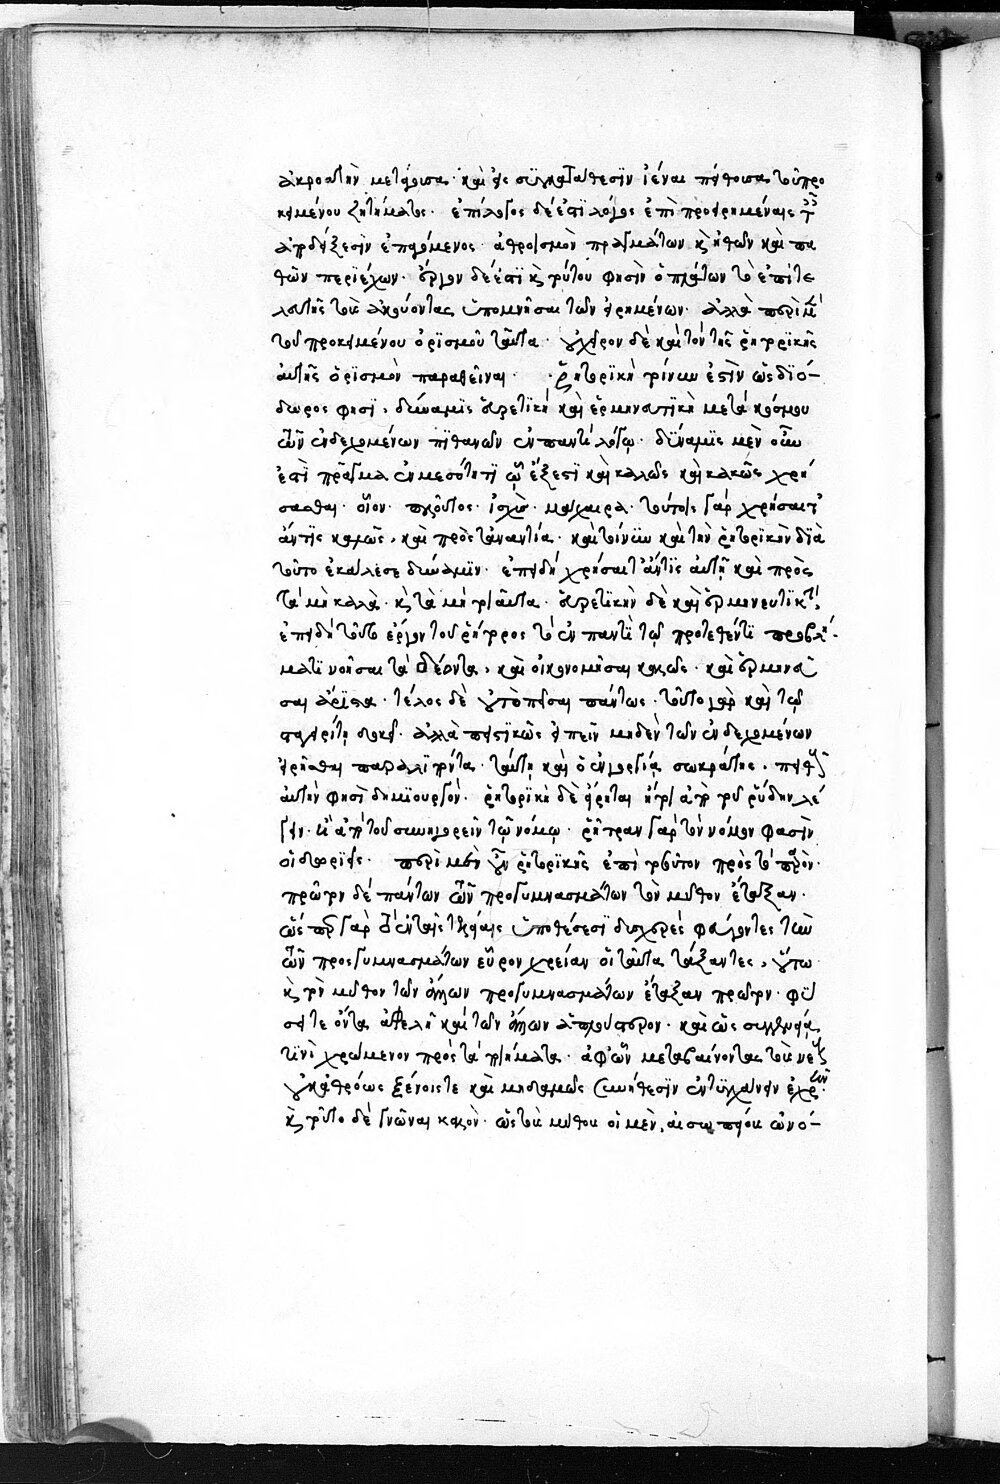 ἀκροατὴν μεταφέρουσα· καὶ εἰς συγκατάθεσιν ἰέναι πείθουσα τοῦ προ
κειμένου ζητήματος· ἐπίλογος δέ ἐστι λόγος ἐπὶ προειρημέναις
ἀποδείξεσιν ἐπαγόμενος· ἀθροισμὸν πραγμάτων καὶ ἠθῶν καὶ πα
θῶν περιέχων· ἔργον δέ ἐστι καὶ τούτου φησὶν ὁ πλάτων τὸ ἐπὶ τε
λευτῆς τοὺς ἀκούοντας ὑπομνῆσαι τῶν εἰρημένων· ἀλλὰ περὶ μὲν
τοῦ προκειμένου ὁρισμοῦ ταῦτα· δὲ καὶ τὸν τῆς ῥητορικῆς
αὐτῆς ὁρισμὸν παραθεῖναι· ῥητορικὴ τοίνυν ἐστὶν ὡς διό–
δωρος φησὶ, δύναμις εὑρετικὴ καὶ ἑρμηνευτικὴ μετὰ κόσμου
τῶν ἐνδεχομένων πιθανῶν ἐν παντὶ λόγῳ· δύναμις μὲν οὖν
ἐστὶ πρᾶγμα ἐν μεσότητι ᾧ ἔξεστι καὶ καλῶς καὶ κακῶς χρή
σασθαι· οἷον· πλοῦτος· ἰσχὺς· μάχαιρα· τούτοις γὰρ χρήσαιτ'
ἄν τις καλῶς, καὶ πρὸς τἀναντία· καὶ τοίνυν καὶ τὴν ῥητορικὴν διὰ
τοῦτο ἐκάλεσε δύναμιν· ἐπειδὴ χρήσαιτ' ἄν τις αὐτῇ καὶ πρὸς
τὰ μὴ καλὰ· καὶ τὰ μὴ τοιαῦτα· εὑρετικὴν δὲ καὶ ἑρμηνευτικὴν,
ἐπειδὴ τοῦτο ἔργον τοῦ ῥήτορος τὸ ἐν παντὶ τῷ προτεθέντι προβλή–
ματι νοῆσαι τὰ δέοντα, καὶ οἰκονομῆσαι καλῶς· καὶ ἑρμηνεῦ
σαι ἄριστα· τέλος δὲ οὐ τὸ πεῖσαι πάντως· τοῦτο γὰρ καὶ τῷ
σταγειρίτῃ δοκεῖ· ἀλλὰ πιστικῶς εἰπεῖν μηδὲν τῶν ἐνδεχομένων
εἰρῆσθαι παραλιπόντα· ταύτῃ καὶ ὁ ἐν γοργίᾳ σωκράτης, πειθοῦς
αὐτὴν φησὶ δημιουργὸν· ῥητορικὴ δὲ εἴρηται ἤτοι ἀπὸ τοῦ ῥύδην λέ
γειν· ἢ ἀπὸ τοῦ συνηγορεῖν τῷ νόμῳ· ῥήτραν γὰρ τὸν νόμον φασὶν
οἱ δωριεῖς· περὶ μὲν οὖν ῥητορικῆς ἐπὶ τοσοῦτον πρὸς τὸ παρὸν·
πρῶτον δὲ πάντων τῶν προγυμνασμάτων τὸν μῦθον ἔταξαν·
ὥσπερ γὰρ ἐν ταῖς τελείαις ὑποθέσεσι διαφερεῖς φαίνονται τινὰ
τῶν προγυμνασμάτων εὗρον χρείαν οἱ ταῦτα τάξαντες, οὕτω
καὶ τὸν μῦθον τῶν ὅλων προγυμνασμάτων ἔταξαν πρῶτον· φύ
σει τε ὄντα ἀφελῆ καὶ τῶν ὅλων ἁπλούστερον· καὶ ὡς συγγενείᾳ
τινὶ χρώμενον πρὸς τὰ ποιήματα· ἀφ' ὧν μεταβαίνοντας τοὺς νέους
οὐκ ἀθρόως ξένοις τε καὶ μηδαμῶς συνήθεσιν ἐντυγχάνειν ἐχρῆν·
καὶ τοῦτο δὲ γνῶναι καλὸν· ὡς τοὺς μύθους οἱ μὲν, αἰσωπείους ὠνό–